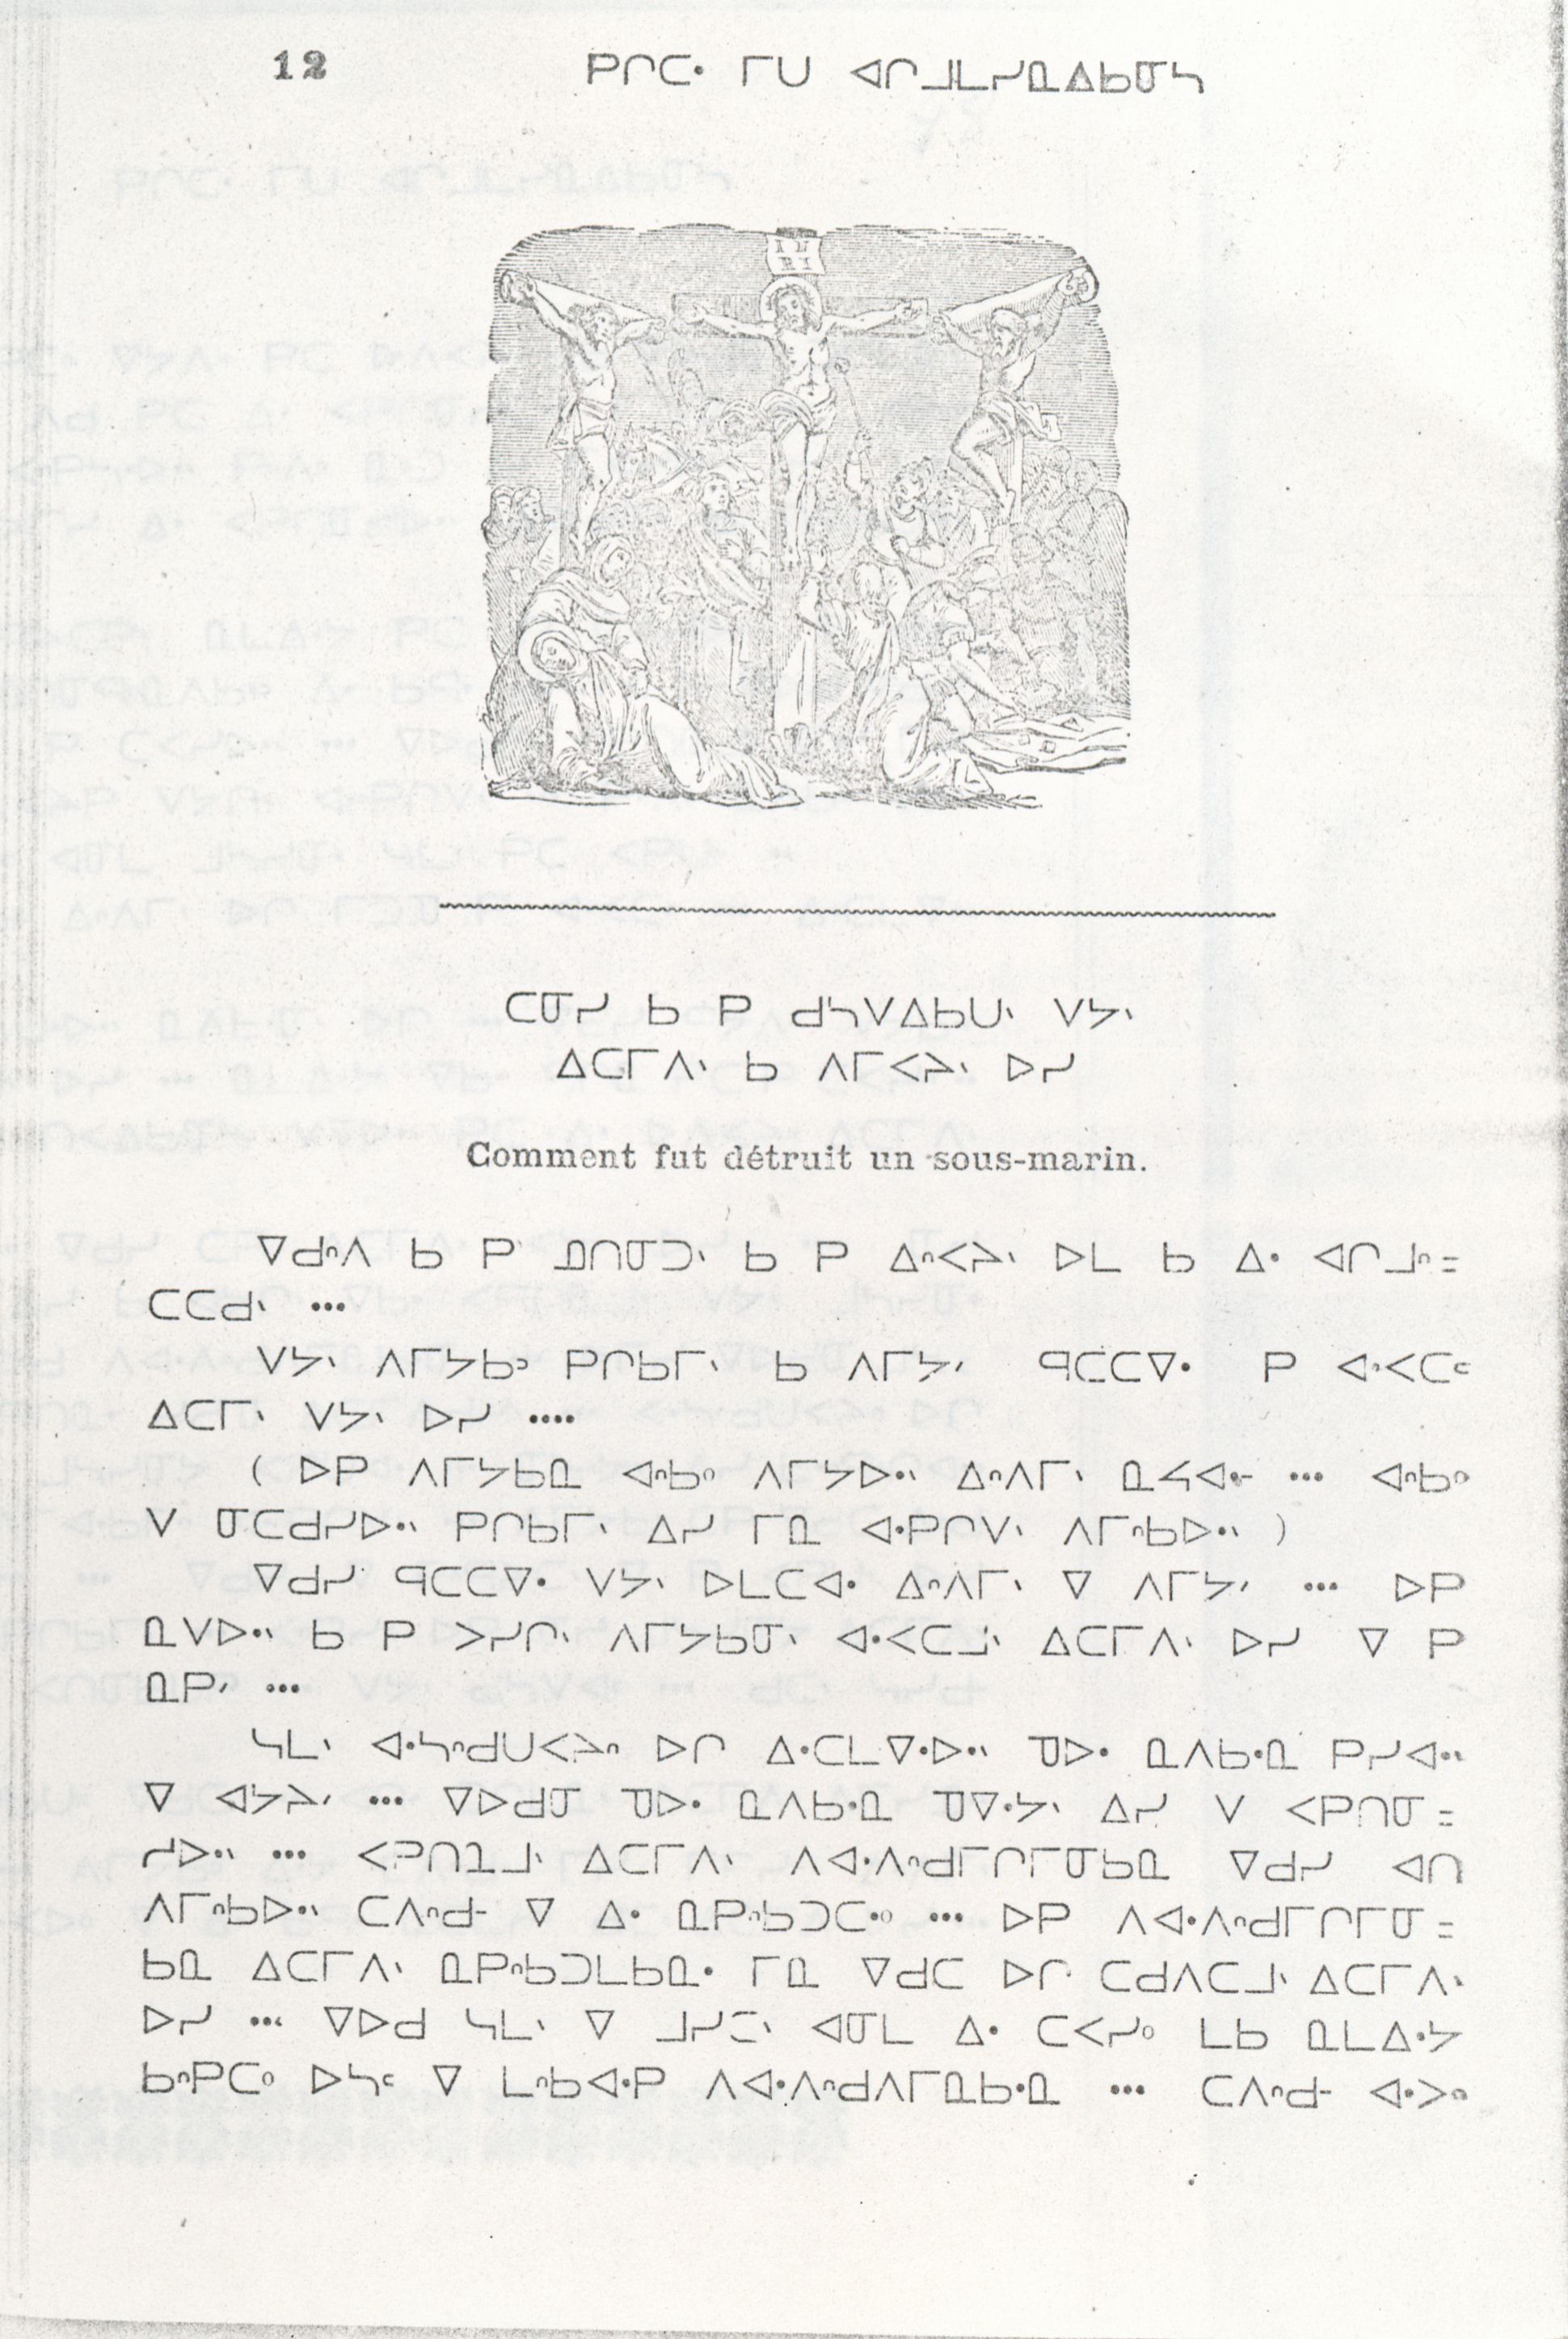 12 ᑭᒋᑕᐧ ᒥᑌ ᐊᒋᒧᒪᓯᓇᐃᑲᓂᓴ
INRI
ᑕᓂᓯ ᑲ ᑭ ᑯᓴᐯᐃᑲᑌᐠ ᐯᔭᐠ
ᐃᑕᒥᐱᐠ ᑲ ᐱᒥᐸᔨᐠ ᐅᓯ
Comment fut détruit un sous-marin.
ᐁᑯᐢᐱ ᑲ ᑭ ᓄᑎᓂᑐᐠ ᑲ ᑭ ᐃᐢᐸᔨᐠ ᐅᒪ ᑲ ᐃᐧ ᐊᒋᒧᐢ =
ᑕᑕᑯᐠ ...
ᐯᔭᐠ ᐱᒥᔭᑲᐣ ᑭᒋᑲᒥᐠ ᑲ ᐱᒥᔭᐟ ᑫᑕᑕᐁᐧ ᑭ ᐊᐧᐸᑕᒼ
ᐃᑕᒥᐠ ᐯᔭᐠ ᐅᓯ ....
( ᐅᑭ ᐱᒥᔭᑲᓇ ᐊᐢᑲᐤ ᐱᒥᔭᐅᐧᐠ ᐃᐢᐱᒥᐠ ᓇᔦᐊᐧᐨ ... ᐊᐢᑲᐤ
ᐯ ᓂᑕᑯᓯᐅᐧᐠ ᑭᒋᑲᒥᐠ ᐃᓯ ᒥᓇ ᐊᐧᑭᒋᐯᐠ ᐱᒥᐢᑲᐅᐧᐠ )
ᐁᑯᓯ ᑫᑕᑕᐁᐧ ᐯᔭᐠ ᐅᒪᑕᐊᐧ ᐃᐢᐱᒥᐠ ᐁ ᐱᒥᔭᐟ ... ᐅᑭ
ᓇᐯᐅᐧᐠ ᑲ ᑭ ᐳᓯᒋᐠ ᐱᒥᔭᑲᓂᐠ ᐊᐧᐸᑕᒧᐠ ᐃᑕᒥᐱᐠ ᐅᓯ ᐁ ᑭ
ᓇᑭᐟ ...
ᓴᒪᐠ ᐊᐧᓴᐢᑯᑌᐸᔨᐢ ᐅᒋ ᐃᐧᑕᒪᐁᐧᐅᐧᐠ ᑯᑕᑭᔭ ᓇᐱᑲᐧᓇ ᑭᓯᐊᐧᐠ
ᐁ ᐊᔭᔨᐟ ... ᐁᐅᑯᓂ ᓀᐅᐧ ᓇᐱᑲᐧᓇ ᓀᐁᐧᔭᐠ ᐃᓯ ᐯ ᐸᑭᑎᓂ =
ᓯᐅᐧᐠ ... ᐸᑭᑎᓇᒧᐠ ᐃᑕᒥᐱᐠ ᐱᐊᐧᐱᐢᑯᒥᒋᒥᓂᑲᓇ ᐁᑯᓯ ᐊᑎ
ᐱᒥᐢᑲᐅᐧᐠ ᑕᐱᐢᑯᐨ ᐁ ᐃᐧ ᓇᑭᐢᑲᑐᑕᐧᐤ ... ᐅᑭ ᐱᐊᐧᐱᐢᑯᒥᒋᒥᓂ =
ᑲᓇ ᐃᑕᒥᐱᐠ ᓇᑭᐢᑲᑐᒪᑲᓇᐧ ᒥᓇ ᐁᑯᑕ ᐅᒋ ᑕᑯᐱᑕᒧᐠ ᐃᑕᒥᐱᐠ
ᐅᓯ ... ᐁᐅᑯ ᓴᒪᐠ ᐁ ᒧᓯᑕᐠ ᐊᓂᒪ ᐃᐧ ᑕᐸᓯᐤ ᒪᑲ ᓇᒪᐃᐧᔭ
ᑲᐢᑭᑕᐤ ᐅᓴᒼ ᐁ ᒪᐢᑲᐊᐧᑭ ᐱᐊᐧᐱᐢᑯᐱᒥᓇᑲᐧᓇ ... ᑕᐱᐢᑯᐨ ᐊᐧᐳᐢ